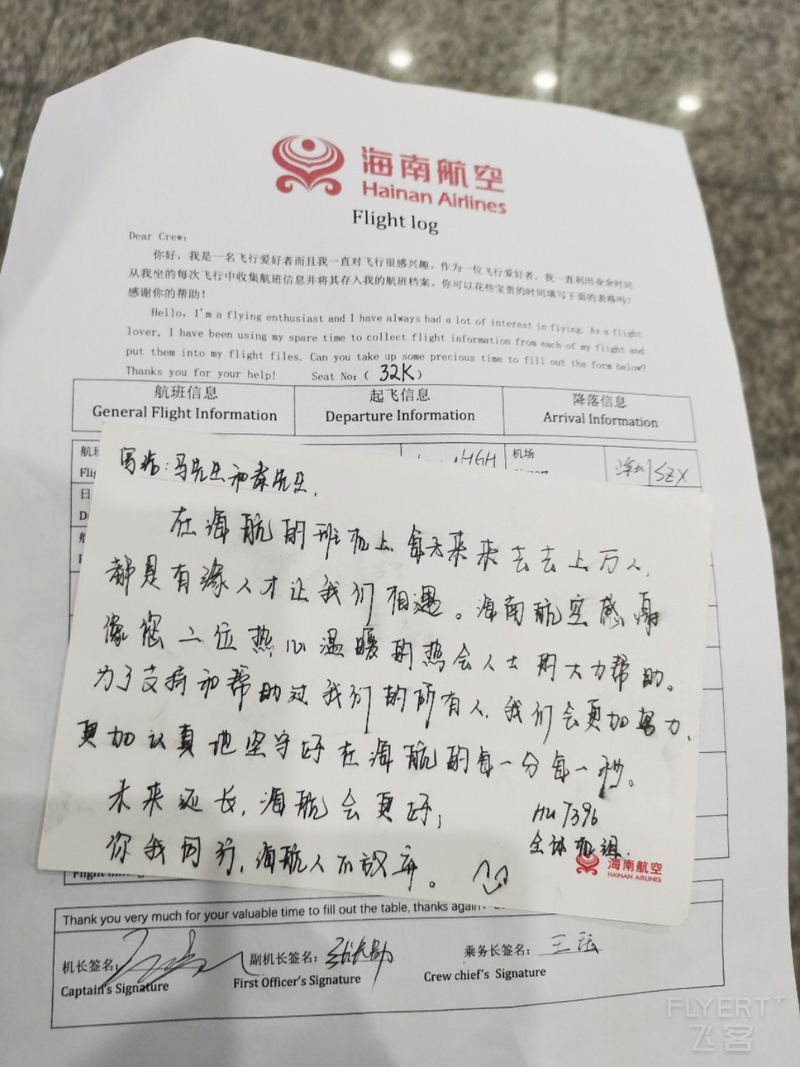 海南航空
Hainan Airlines
Flight log
Dear Crew:
你好，我是一名飞行爱好者而且我一直对飞行很感兴趣。作为一位飞行爱好者，我一直利用业余时间
从我坐的每次飞行中收集航班信息并将其存入我的航班档案。你可以花些宝贵的时间填写下面的表格吗？
感谢你的帮助！
Hello, I'm a flying enthusiast and I have always had a lot of interest in flying. As a flight
lover, I have been using my spare time to collect flight information from each of my flight and
put them into my flight files. Can you take up some precious time to fill out the form below?
Thanks you for your help! Seat No:( 32K )
航班信息 起飞信息 降落信息
General Flight Information Departure Information Arrival Information
HGH 机场 深圳SZX
写给：马先生和 先生，
在海航的班机上每天来来去去上万人，
都是有缘人才让我们相遇。海南航空感谢
像您二位热心温暖的热会人士的大力帮助。
为了支持和帮助过我们的所有人，我们会更加努力，
更加认真地坚守好在海航的每一分每一秒。
未来还长，海航会更好；
你我同行，海航人不放弃。
HU7396
全体机组
海南航空
HAINAN AIRLINES
Thank you very much for your valuable time to fill out the table, thanks again!
机长签名： 副机长签名： 乘务长签名：
Captain's Signature First Officer's Signature Crew chief's Signature
FLYERT+
飞客